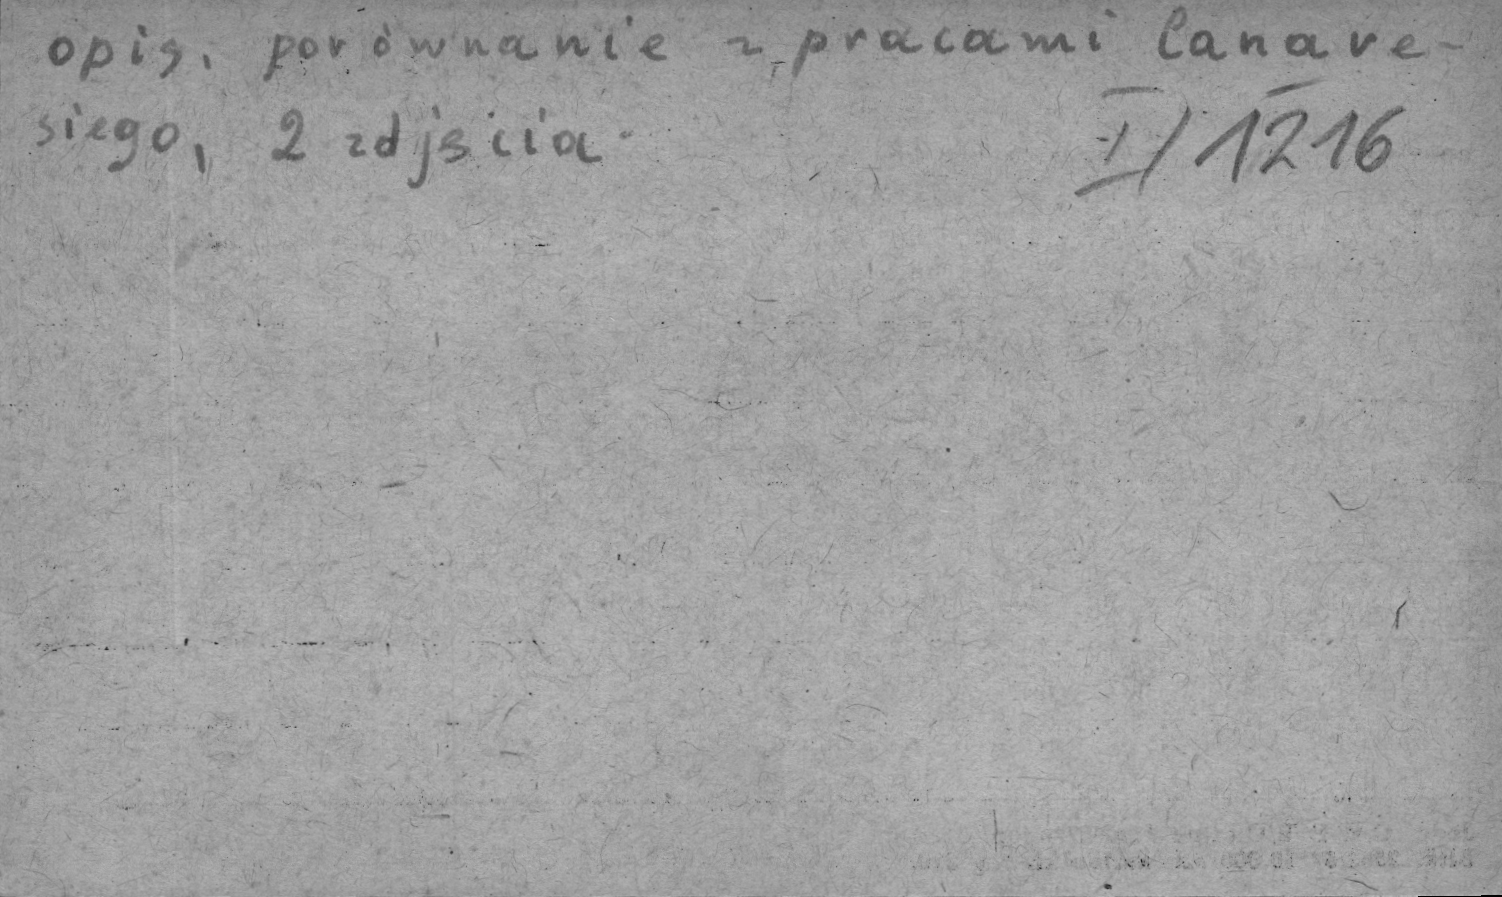 opis, porównanie z pracami Canave-
siego, 2 zdjęcia
I/1216